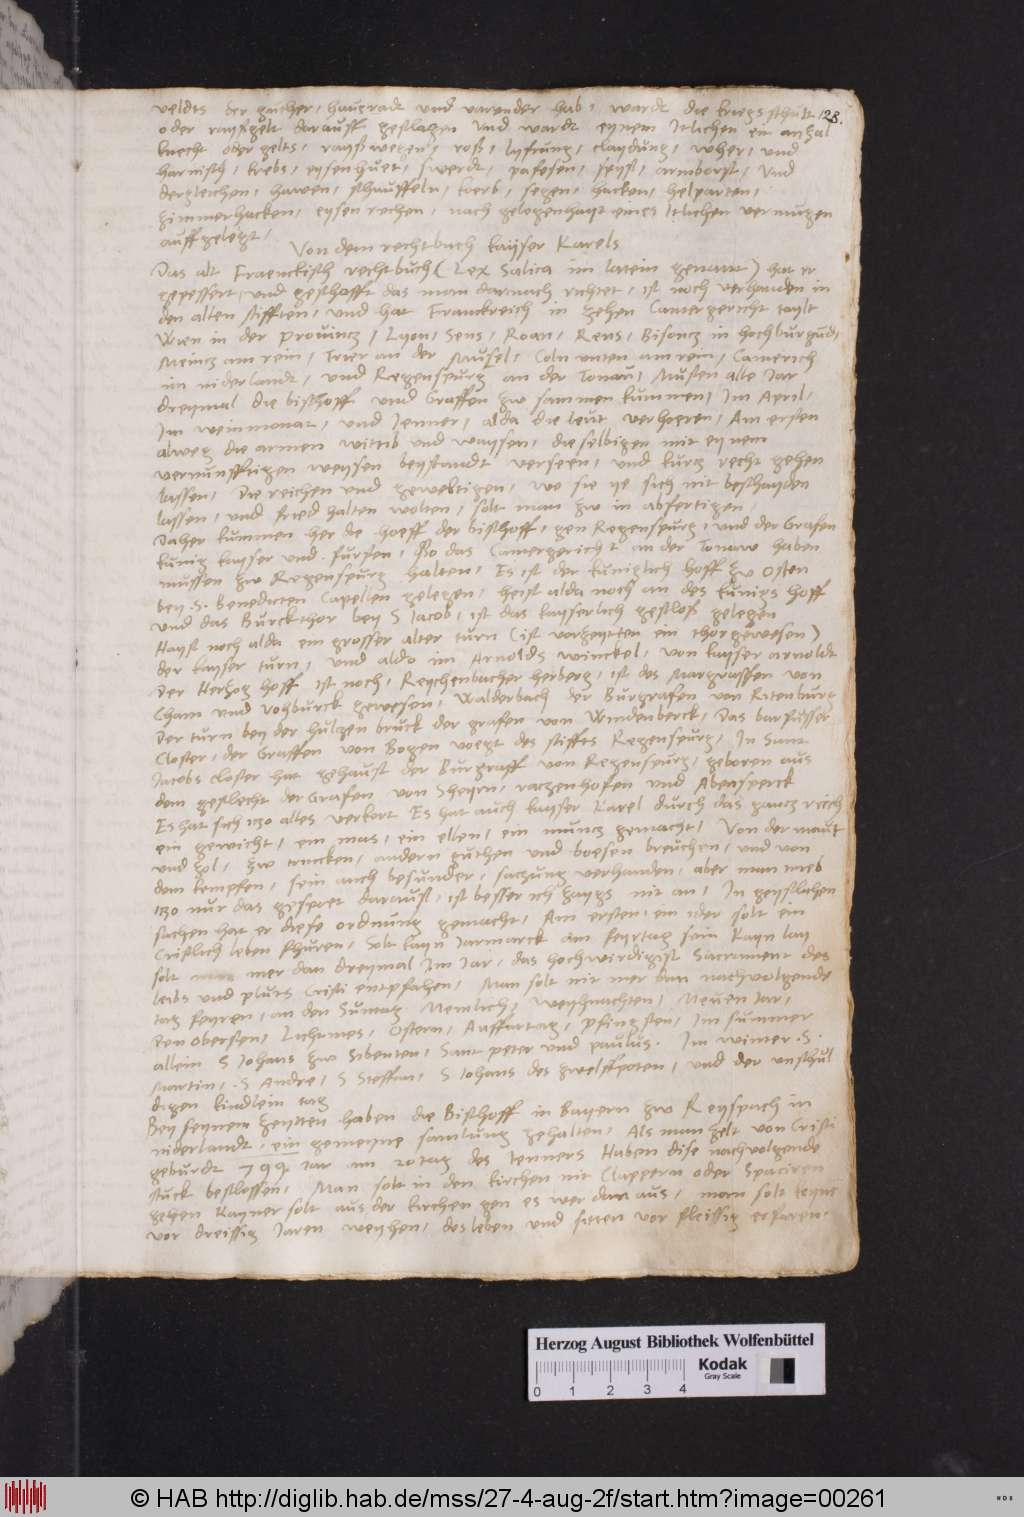 veldts der gucher, hausradt und varunder hab, wardt die kriegsschutt 128.
oder raysgelt darauff geslagen Und wardt eynem Itlichen ein anzal
knecht oder gelts, raysswegen, ross, lyfrung, claydung, wher, und
harnisch, krebs, eysenhuet, swerdt, pafesen, speys, armborst, Und
dergleichen, hawen, schauffeln, koerb, segen, hacken, helparten,
zimmerhacken, eysen rechen, nach gelegenhayt eines Itlichen vermugen
auffgelegt,
Von dem rechtbuch kayser Karels
Das alt Franckisch rechtbuch (Lex Salica im latein genant) hat er
gepessert, und geschafft das man darnach richtet, ist noch verhanden in
den alten stifften, und hat Franckreich in zehen Camergericht taylt
Wien in der provincz, Lyon, Sens, Roan, Rens, Bisoncz in hochburgund,
Meincz am rein, Trier an der Musel, Coln unten am rein, Camerich
im niderlandt, und Regenspurg an der Tonau, Musten alle Jar
dreymal die bischoff und Graffen zw sammen kummen, Im April,
Im weinmonat, und Jenner, alda die leut verhoeren, Am ersten
alweg die armen wittib und waysen, die selbigen mit eynem
vernunfftigen weysen beystandt verseen, und kurcz recht gehen
lassen, Die reichen und geweltigen, wo sie ye sich nit beschayden
lassen, und fried halten wolten, solt man zw in abfertigen,
Daher kummen her die hoeff der bischoff, gen Regenspurg, und der Grafen
kunig kayser und fursen, So das Camergericht an der Tonaw haben
mussen zw Regenspurg halten, Es ist der kuniglich hoff zw Osten
bey .S. Benedicten Capellen gelegen, heist alda noch an des kunigs hoff
und das Burckthor bey S Jacob, ist das kayserlich geschloss gelegen
Hayst noch alda ein grosser alter turn (ist vorzeytten ein thor gewesen)
der kayser turn, und aldo im Arnolds winckel, von kayser arnoldt
Der Herzog hoff ist noch, Reychenbacher herberg, ist des Margraffen von
Cham und Vohburck gewesen, Walderbach der Burgrafen von Ritenburg
Der turn bey der hulzen bruck der grafen von Windenberck, Das barfusser
Closter, der Graffen von Bogen voegt des stiffts Regenspurg, In Sant
Jacobs closter hat gehaust der Burgraff von Regenspurg, geboren aus
dem geslecht der Grafen von Sheyrn, raczenhofen und Abensperck
Es hat sich iczo alles verkert Es hat auch kayser Karel durch das gancz reich
ein gewicht, ein mas, ein ellen, ein muncz gemacht, Von der maut
und zol, zw trincken, andern guthen und boesen breuchen, und von
dem kempfen, sein auch besunder, saczung verhanden, aber man treib
iczo nur das gespoet daraust, ist besser ich zaygs nit an, In geystlichen
sachen hat er diese ordnung gemacht, Am ersten, ein ider solt ein
Cristlich leben fhuren, Solt kayn Jarmarck am feyrtag sein Kayn lay
solt mer dan dreymal Im Jar, das hochwirdigist Sacrament des
leibs und pluts Cristi entpfahen, Man solt nit mer dan nachvolgende
tag feyren, an den Suntag Nemlich, Weyhnachten, Neuen Jar,
Den obersten, Lichtmes, Ostern, Auffartag, pfingsten, Im summer
allein S Johans zw Sibenten, Sant peter und paulus. Im winter .S.
Martin, .S. Andre, S Steffan, S Johans des zwelfpoten, und der unschul
digen kindlein tag
Bey seynem zeytten haben die Bischoff in Bayern zw Reyspach in
niderlandt, ein gemeyne samlung gehalten, Als man zelt von Cristi
geburdt 799. Jar am 20 tag des Jenners Haben dise nachvolgende
stuck beschlossen, Man solt in den kirchen nit Clappern oder Spaciren
gehen Kayner solt aus der kirchen gen es wer dan aus, man solt keyne
vor dreissig Jaren weyhen, des leben und sieten vor fleissig erfaren,
Herzog August Bibliothek Wolfenbüttel
Kodak
Gray Scale
0 1 2 3 4
© HAB http://diglib.hab.de/mss/27-4-aug-2f/start.htm?image=00261